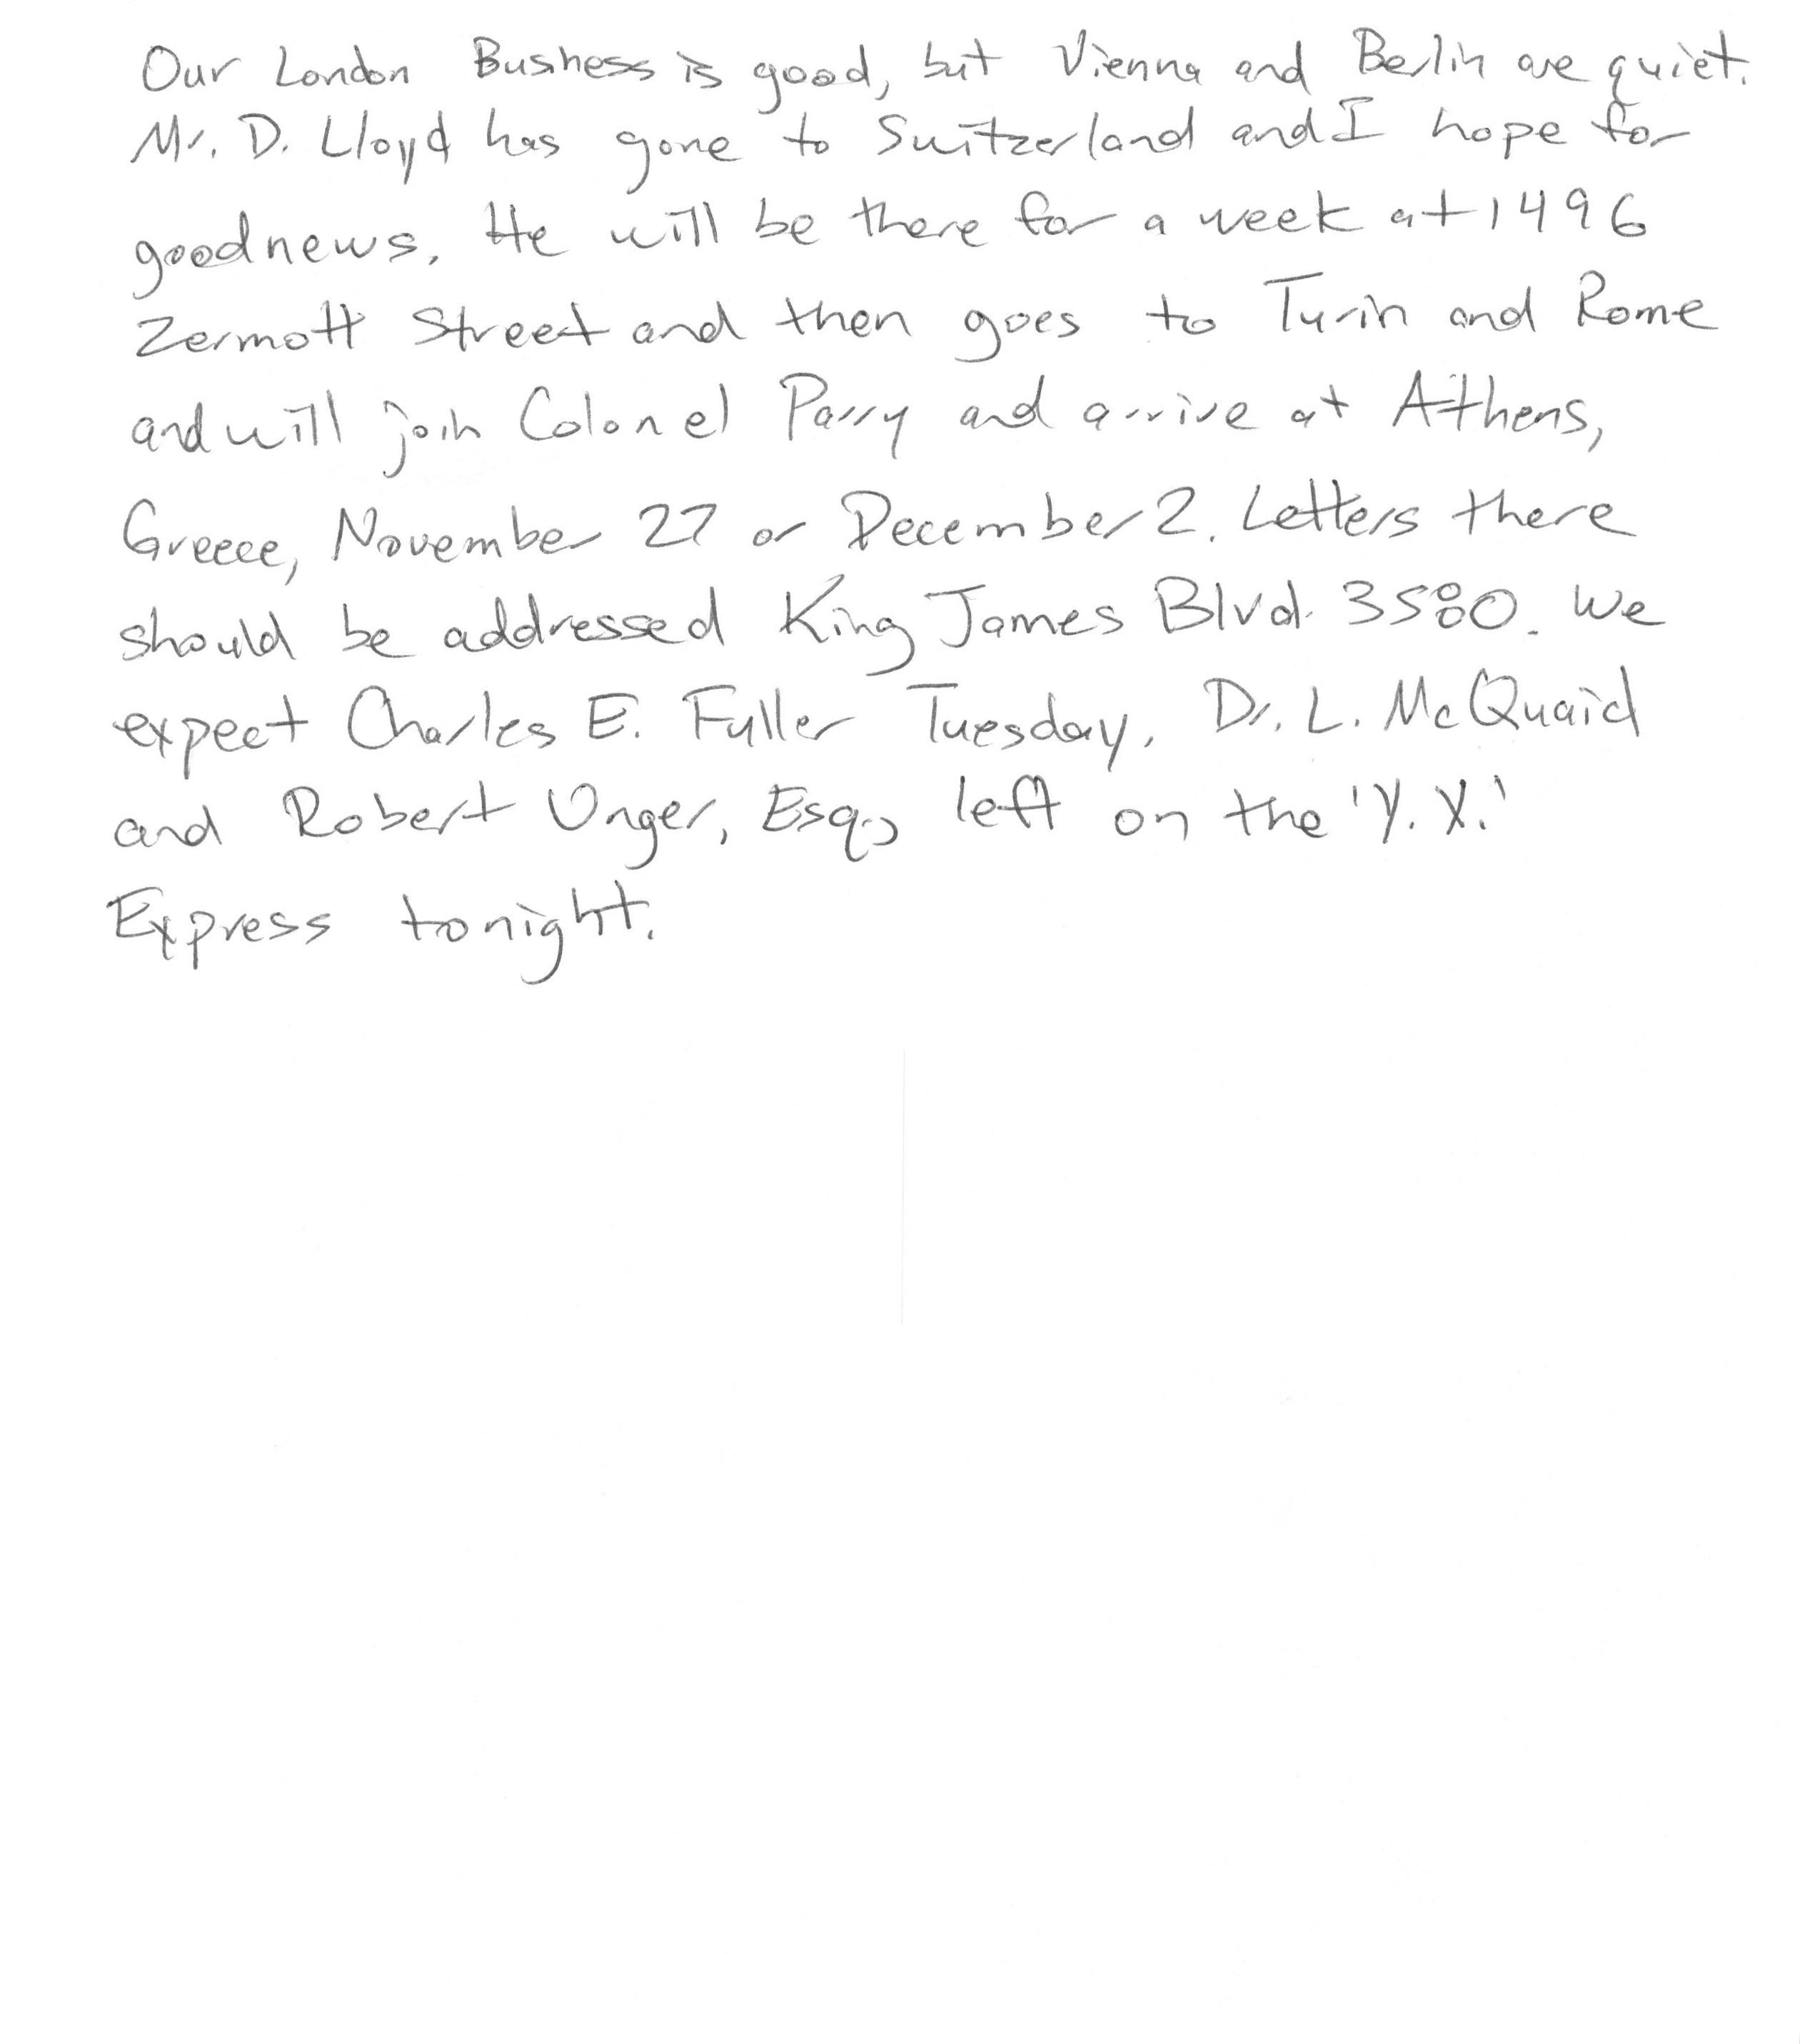 Our London Business is good, but Vienna and Berlin are quiet.
Mr. D. Lloyd has gone to Switzerland and I hope for
good news. He will be there for a week at 1496
Zermott Street and then goes to Turin and Rome
and will join Colonel Parry and arrive at Athens,
Greece, November 27 or December 2. Letters there
should be addressed King James Blvd. 3580. We
expect Charles E. Fuller Tuesday. Dr. L. McQuaid
and Robert Unger, Esq., left on the 'Y.X.'
Express tonight.